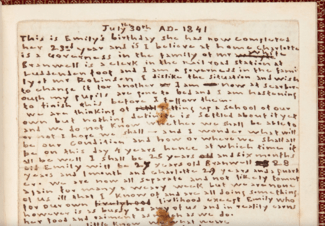 July 30th AD - 1841
This is Emily's birthday she has now completed
her 23rd year and is I believe at home Charlotte
is a Governess in the family of Mr
Branwell is a clerk in the railroad station at
Luddenden Foot and I am a governess in the fami
ly of Mr Robinson I dislike the situation and wish
to change it for another I am now at Scarbor
ough my pupils are gone to bed and I am hastening
to finish this before I follow them -
we are thinking of setting up a school of our
own but nothing definite is settled about it yet
and we do not know whether we shall be able to
or not I hope we shall and I wonder what will
be our condition and how or where we shall all
be on this day four years hence at which time if
all be well I shall be 25 years and six months
old Emily will be 27 years old Branwell 28
years and 1 month and Charlotte 29 years and a quart
er we are now all separate and not likely to meet
again for many a weary week but we are none
of us ill that I know of and are all doing something
for our own livelihood except Emily who
however is as busy as any of us and in reality earns
her food and raiment as much as we do
little know we what we are